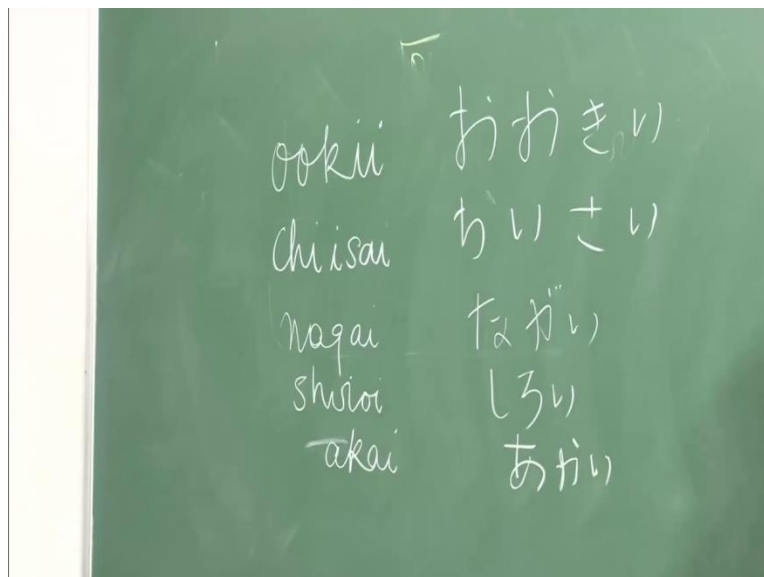 ookii おおきい
chiisai ちいさい
nagai ながい
shiroi しろい
akai あかい